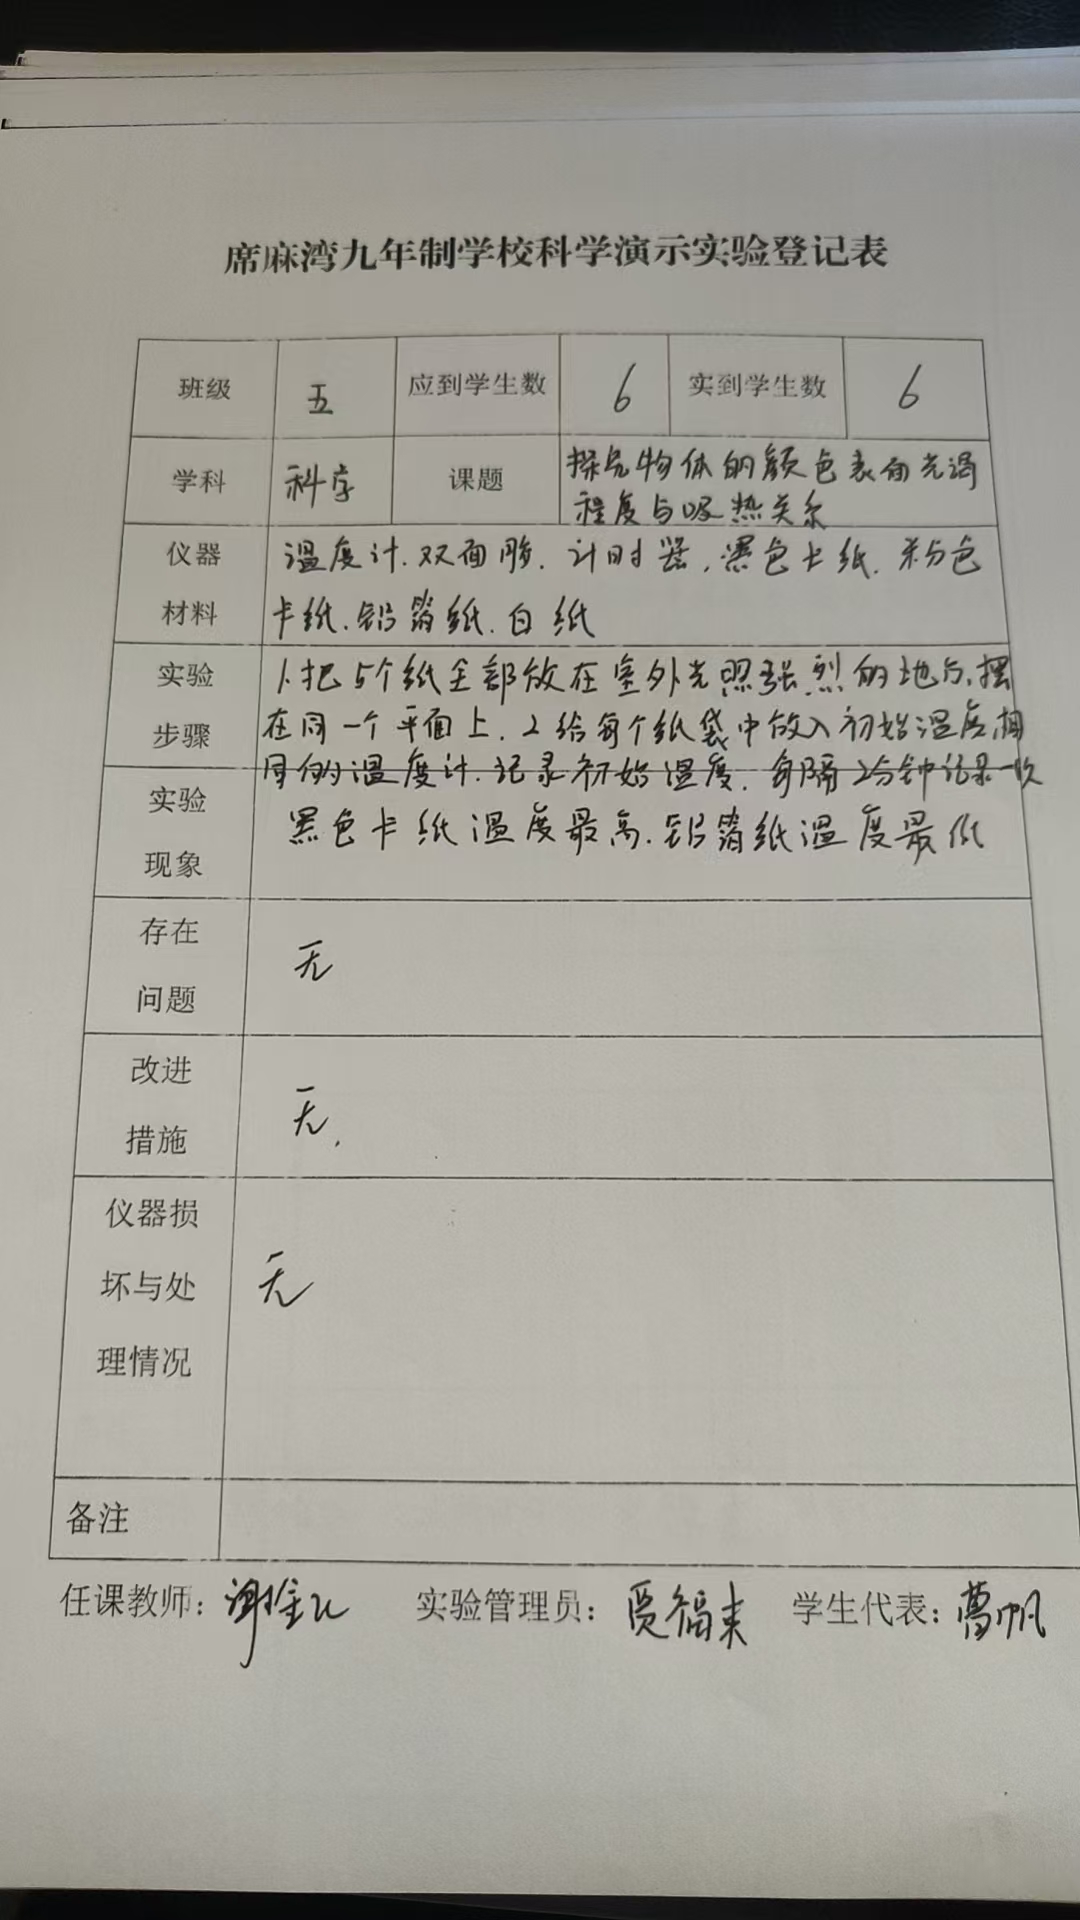 席麻湾九年制学校科学演示实验登记表
班级 五 应到学生数 6 实到学生数 6
学科 科学 课题 探究物体的颜色表面光滑
程度与吸热关系
仪器 温度计.双面胶.计时器,黑色卡纸.粉色
材料 卡纸.铝箔纸.白纸
实验 1.把5个纸全部放在室外光照强烈的地方,摆
步骤 在同一个平面上.2给每个纸袋中放入初始温度相
同的温度计.记录初始温度.每隔2分钟记录一次
实验 黑色卡纸温度最高.铝箔纸温度最低
现象
存在 无
问题
改进 无.
措施
仪器损
坏与处 无
理情况
备注
任课教师: 实验管理员:贾福来 学生代表:曹帆